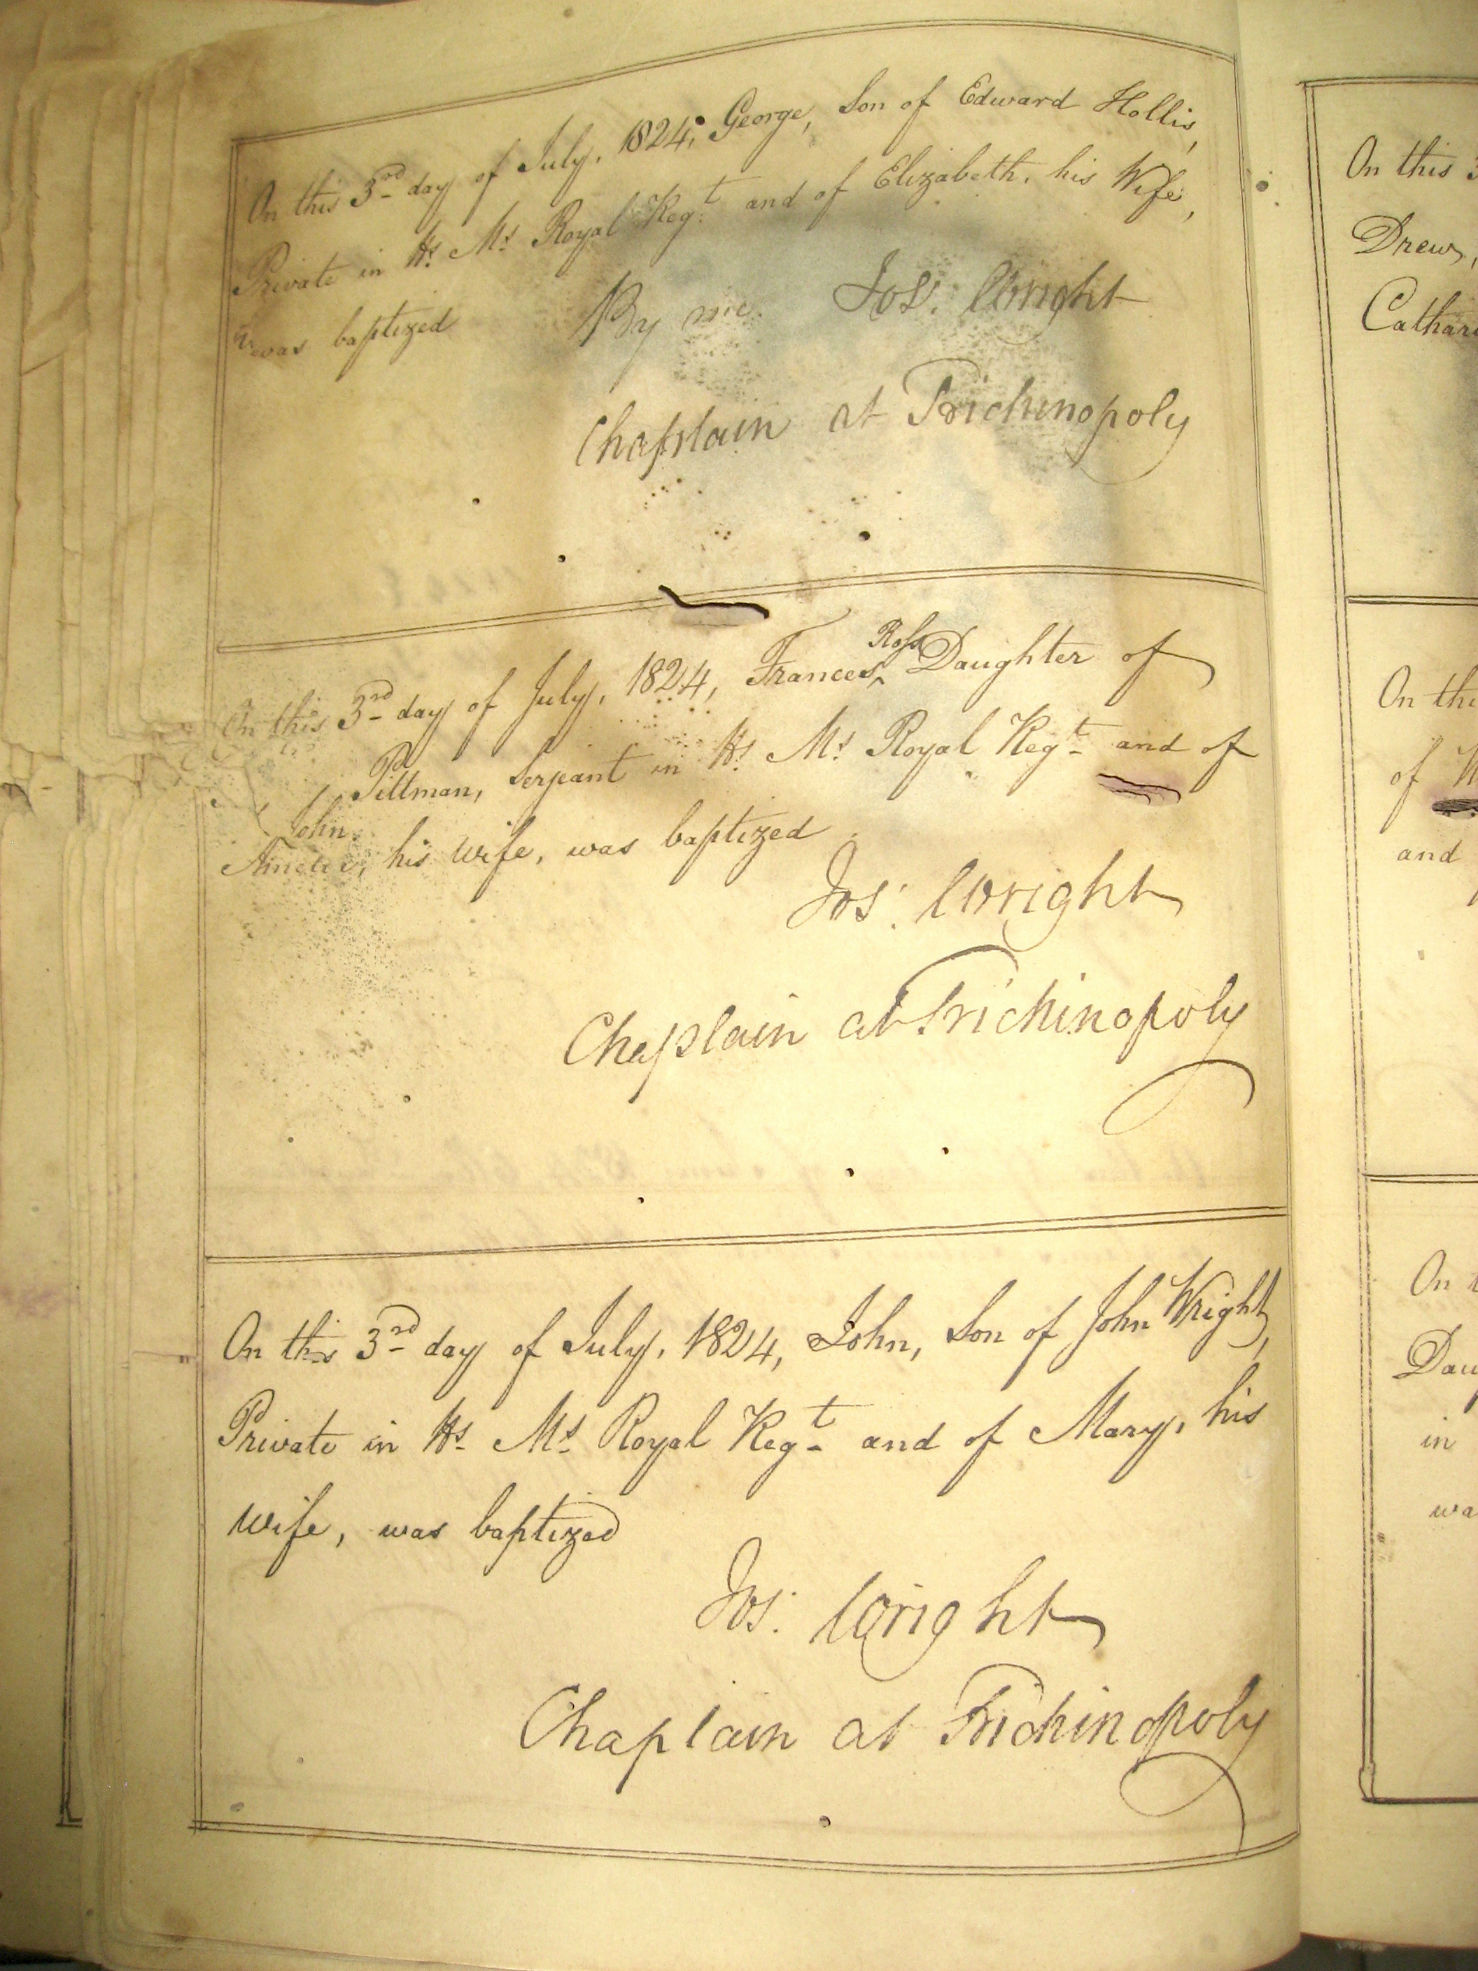 On this 3rd day of July, 1824, George, Son of Edward Hollis,
Private in Hs. Ms. Royal Regt. and of Elizabeth, his Wife,
was baptized
By me Jos. Wright
Chaplain at Trichinopoly
On this 3rd day of July, 1824, Frances ^ Ross Daughter of
John Pittman, Serjeant in Hs. Ms. Royal Regt. and of
his Wife, was baptized
Jos. Wright
Chaplain at Trichinopoly
On this 3rd day of July, 1824, John, Son of John Wright,
Private in Hs. Ms. Royal Regt. and of Mary, his
Wife, was baptized
Jos. Wright
Chaplain at Trichinopoly
On this
Drew,
On
of
and
On
in